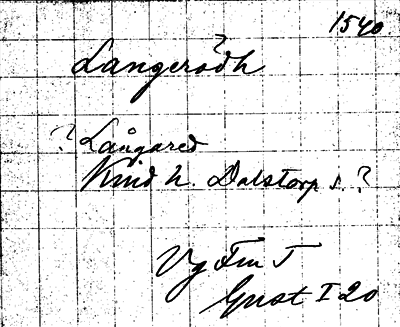 1540
?
Langerödh
? Långared
Kind h. Dalstorp s. ?
Vg Fru T
Gust I 20